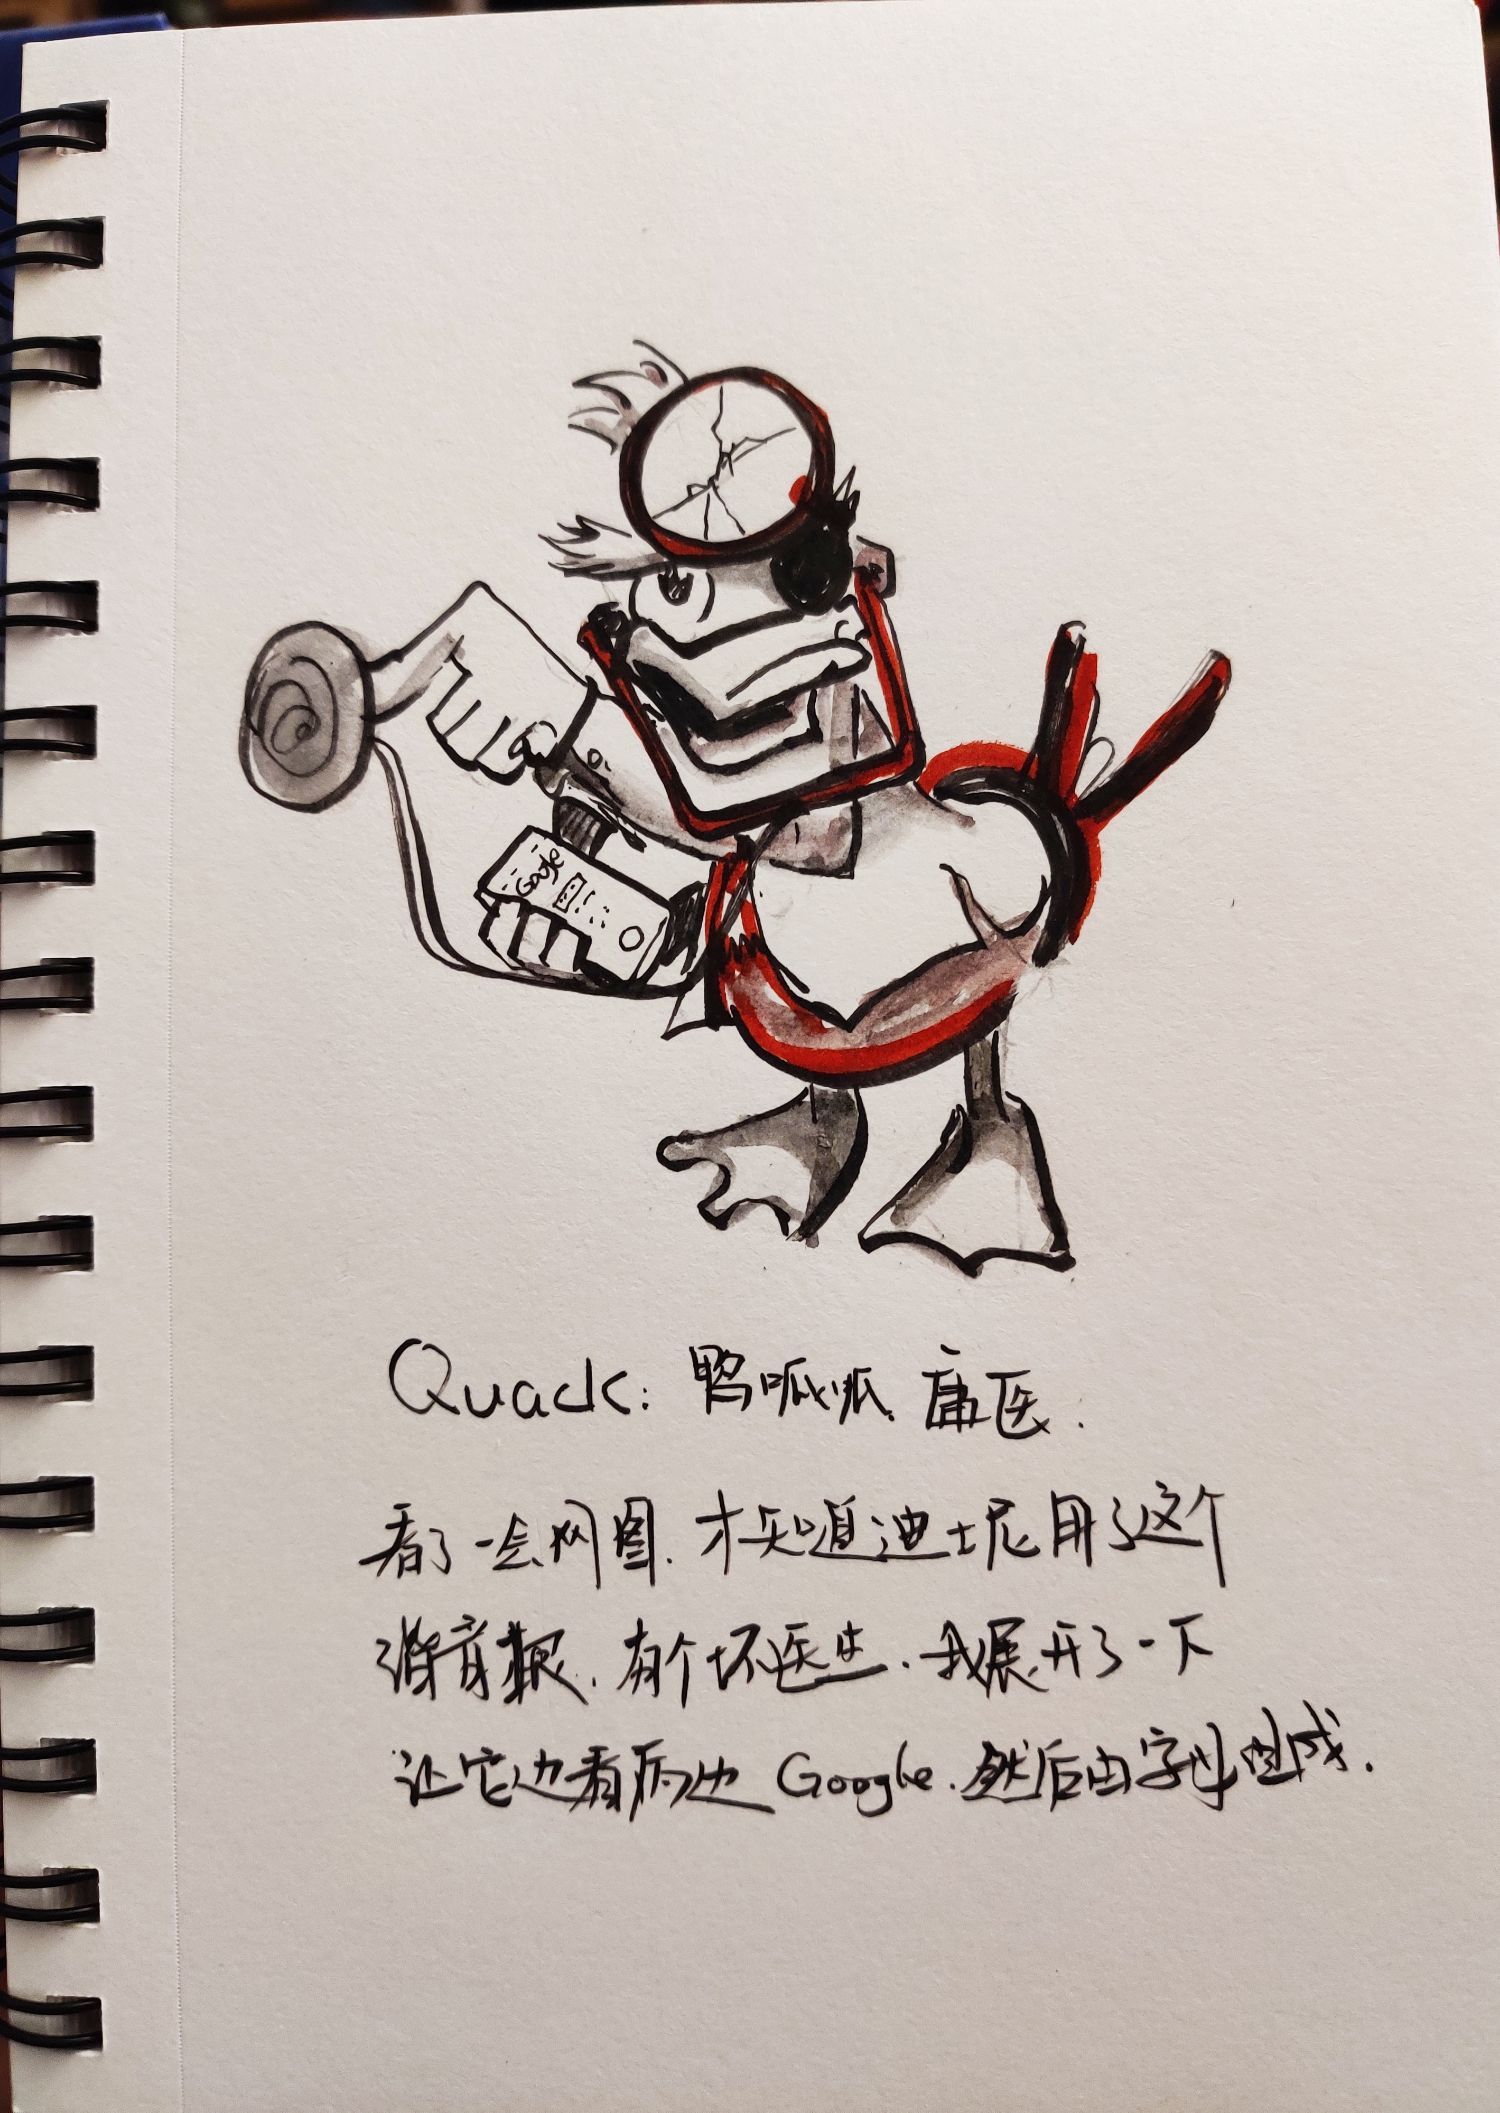 Google
Quack: 鸭呱呱. 庸医.
看了一会网图. 才知道迪士尼用了这个
谐音梗. 有个坏医生. 我展开了一下
让它边看病边 Google. 然后由字母组成.